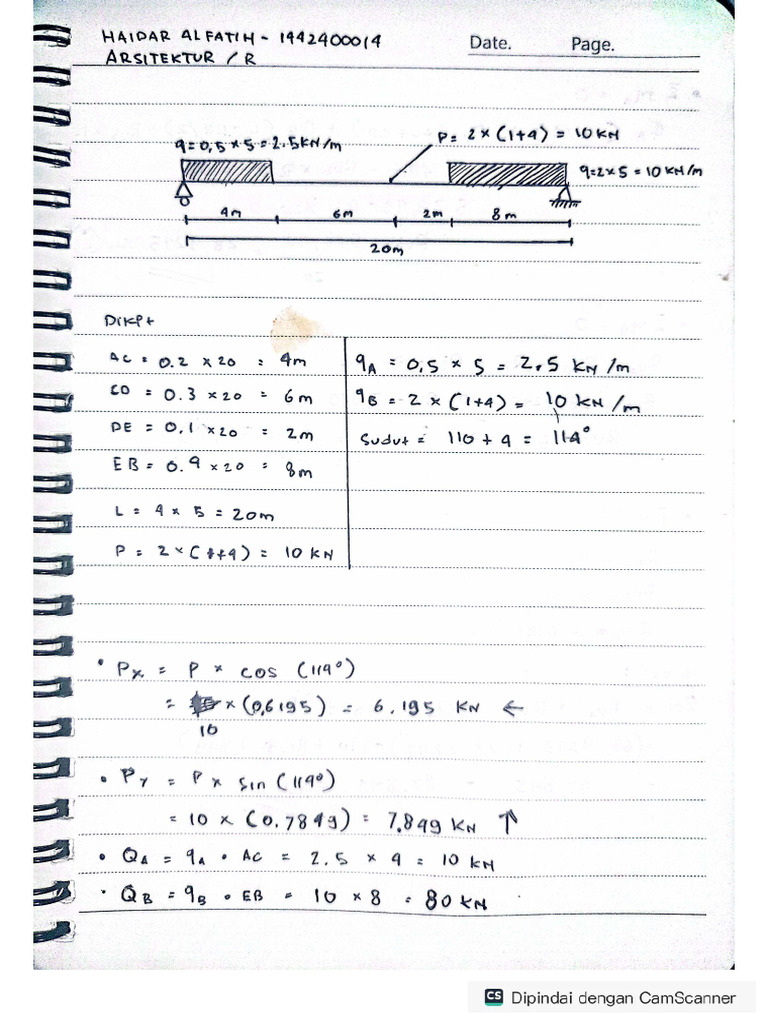 HAIDAR ALFATIH - 1442400014
Date. Page.
ARSITEKTUR / R
q=0,5 x 5 = 2.5 KN/m
P= 2 x (1+4) = 10 KN
q=2x5 = 10 KN/m
4m 6m 2m 8m
20m
Dikpt
AC = 0.2 x 20 = 4m
CD = 0.3 x 20 = 6m
DE = 0,1 x 20 = 2m
EB = 0.4 x 20 = 8m
L = 4 x 5 = 20m
P = 2 x (1+4) = 10 KN
qA = 0,5 x 5 = 2,5 KN/m
qB = 2 x (1+4) = 10 KN/m
Sudut = 110 + 4 = 114°
• Px = P x cos (114°)
= x (0,6195) = 6.195 KN ←
10
• Py = P x sin (114°)
= 10 x (0.7849) = 7.849 KN ↑
• QA = qA • AC = 2.5 x 4 = 10 KN
• QB = qB • EB = 10 x 8 = 80 KN
CS Dipindai dengan CamScanner